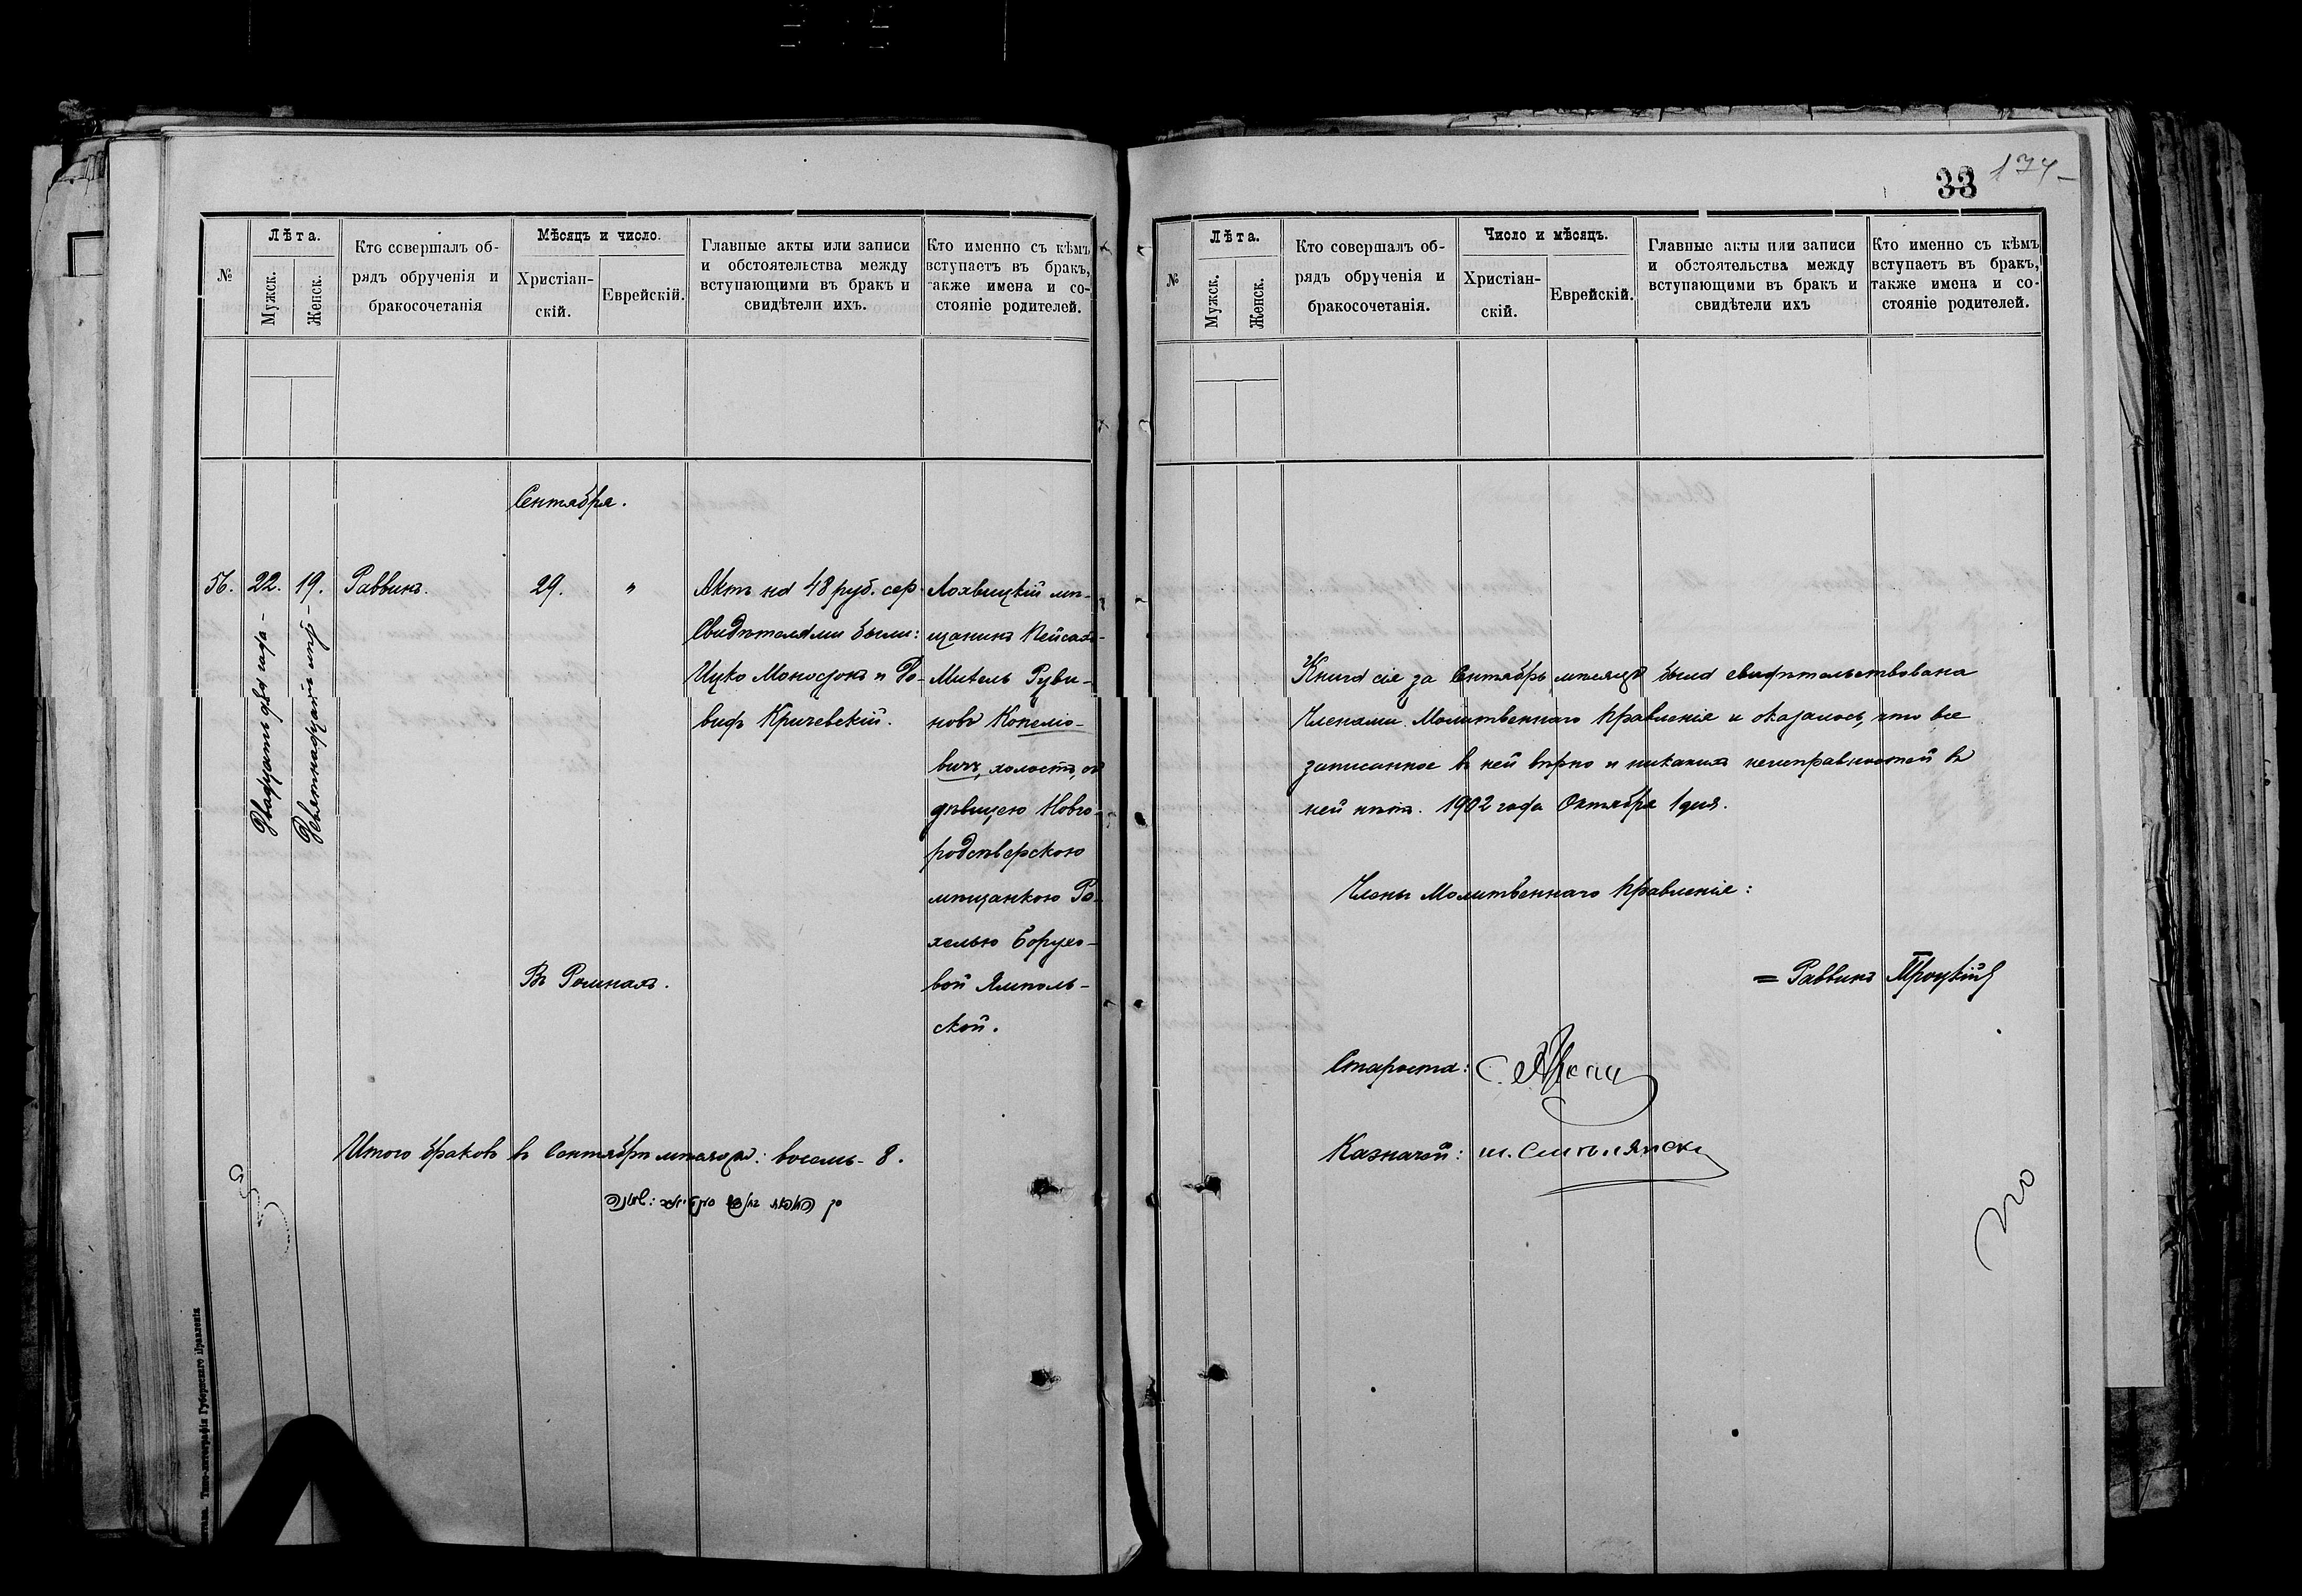 №
Лѣта.
Мужск.
Женск.
Кто совершалъ об-
рядъ обрученія и
бракосочетанія
Мѣсяцъ и число.
Христіан-
скій.
Еврейскій.
Главные акты или записи
и обстоятельства между
вступающими въ бракъ и
свидѣтели ихъ.
Кто именно съ кѣмъ
вступаетъ въ бракъ,
также имена и со-
стояніе родителей.
Сентября.
56.
22.
Двадцать два года
19.
Девятнадцать лѣтъ
Раввинъ.
29.
"
Актъ на 48 руб. сер.
Свидѣтелями были:
Ицко Моносзонъ и Да-
видъ Кричевскій.
Лохвицкій мѣ-
щанинъ Пейсахъ-
Митель Руви-
новъ Копелiо-
вичъ, холостъ, съ
дѣвицею Новго-
родсѣверскою
мѣщанкою Ра-
хелью Борухо-
вой Ямполь-
ской.
Въ Ромнахъ.
Итого браковъ въ Сентябрѣ мѣсяцѣ: восемь - 8.
Типо-литографія Губернскаго Правленія
33
174-
№
Лѣта.
Мужск.
Женск.
Кто совершалъ об-
рядъ обрученія и
бракосочетанія.
Число и мѣсяцъ.
Христіан-
скій.
Еврейскій.
Главные акты или записи
и обстоятельства между
вступающими въ бракъ и
свидѣтели ихъ
Кто именно съ кѣмъ
вступаетъ въ бракъ,
также имена и со-
стояніе родителей.
Книга сія за Сентябрь мѣсяцъ была свидѣтельствована
Членами Молитвеннаго Правленія и оказалось, что все
записанное въ ней вѣрно и никакихъ неисправностей въ
ней нѣтъ. 1902 года Октября 1 дня.
Члены Молитвеннаго Правленія:
= Раввинъ Троцкій
Староста:
Казначей: